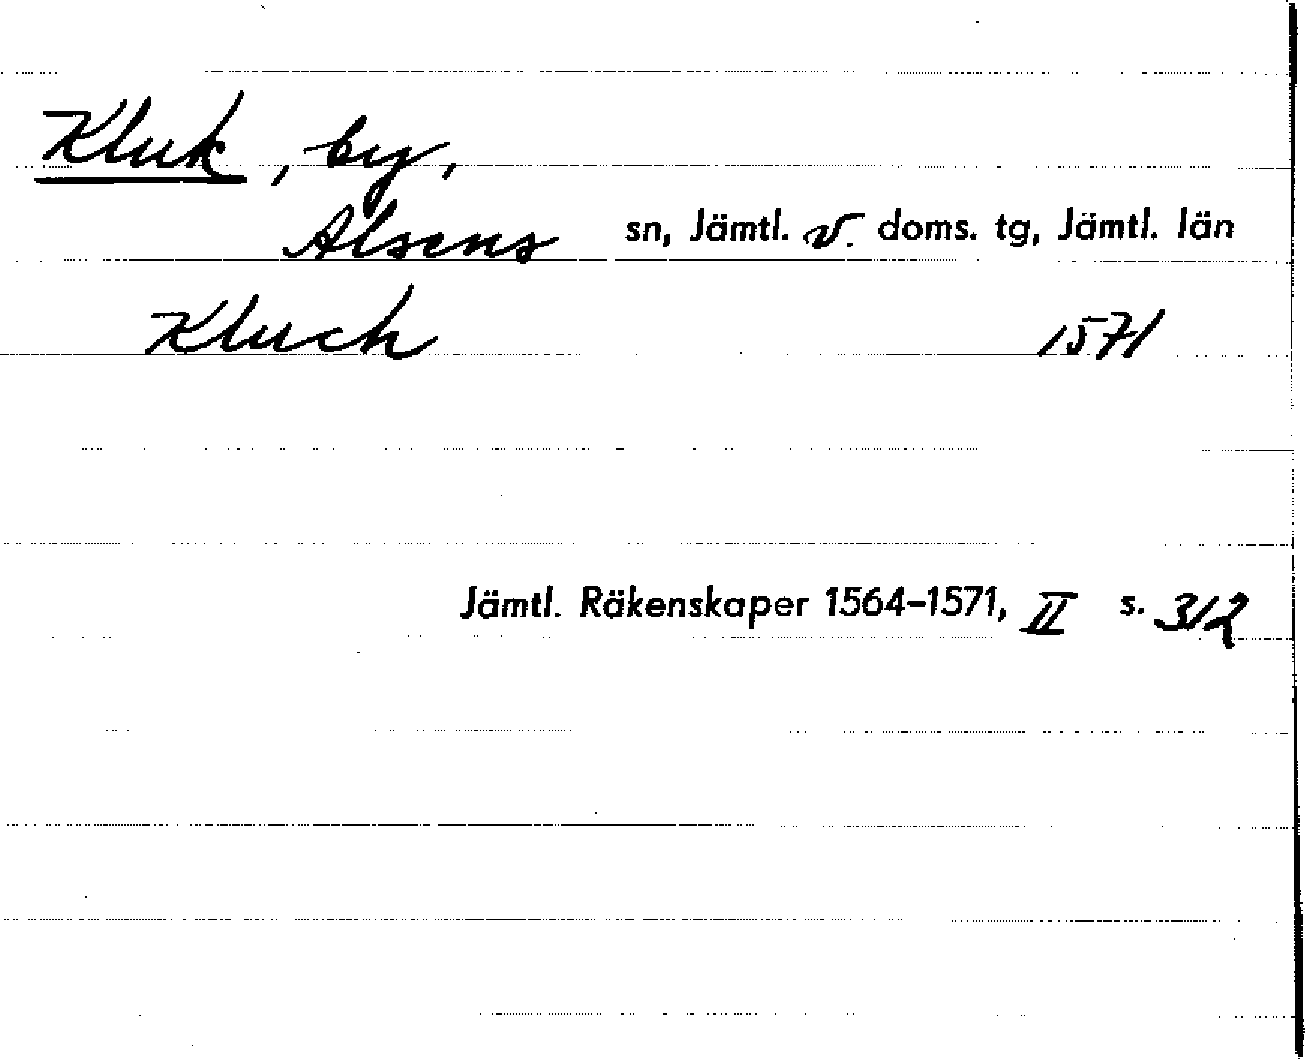 Kluk, by,
Alsens sn, Jämtl. v. doms. tg, Jämtl. län
Kluch 1571
Jämtl. Räkenskaper 1564-1571, II s. 312